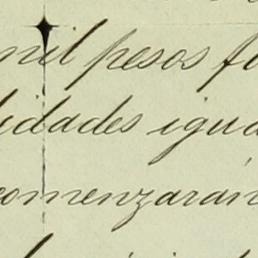 mil pesos fu
lidades igua
comenzarán